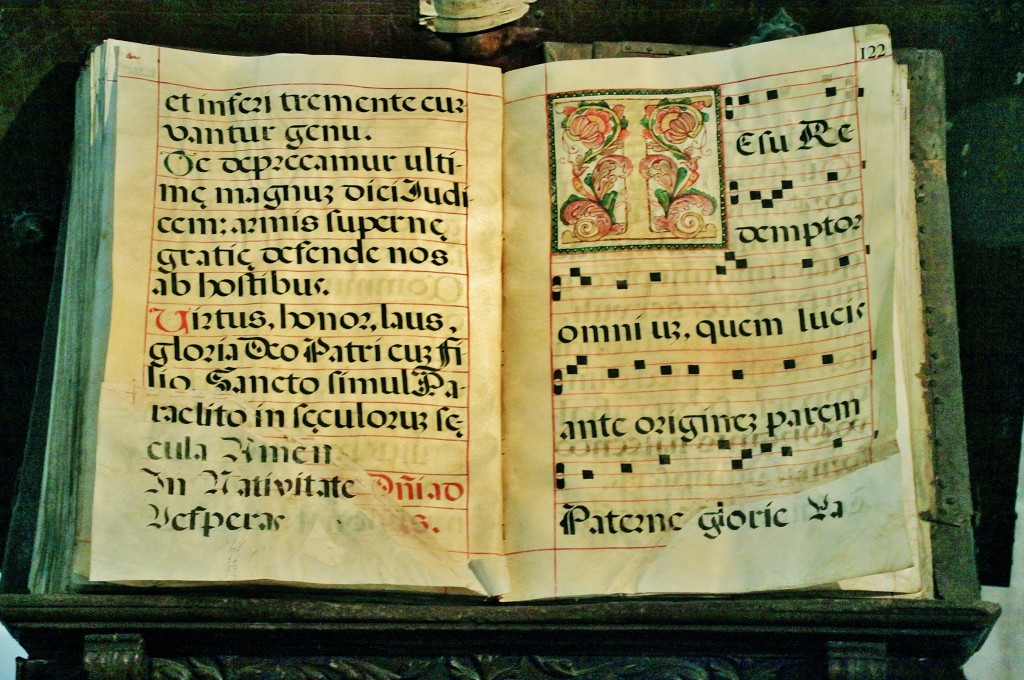 et inferi tremente cur
vantur genu.
Te deprecamur ulti-
mę magnuz diei Iudi
cem: armis supernę
gratię defende nos
ab hostibus.
Virtus, honor, laus,
gloria Deo Patri cuz fi
lio. Sancto simul Pa-
raclito in sęculoruz sę
cula Amen
In Nativitate Dñi ad
Vesperas
122
IEsu Re
demptor
omniuz, quem lucis
ante originez parem
Paterne glorie Pa